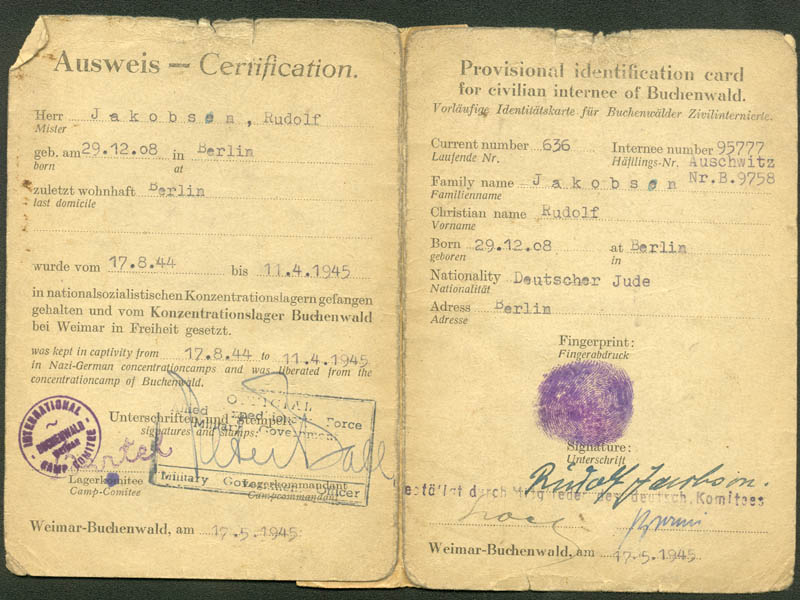 Ausweis — Certification.
Herr Jakobsen, Rudolf
Mister
geb. am 29.12.08 in Berlin
born at
zuletzt wohnhaft Berlin
last domicile
wurde vom 17.8.44 bis 11.4.1945
in nationalsozialistischen Konzentrationslagern gefangen
gehalten und vom Konzentrationslager Buchenwald
bei Weimar in Freiheit gesetzt.
was kept in captivity from 17.8.44 to 11.4.1945
in Nazi-German concentrationcamps and was liberated from the
concentrationcamp of Buchenwald.
OFFICIAL
Allied Expeditionary Force
Military Government
Unterschriften und Stempel:
signatures and stamps:
INTERNATIONAL
BUCHENWALD
CAMP COMITEE
Military Government Officer
Lagerkomitee Lagerkommandant
Camp-Comitee Campcommandant
Weimar-Buchenwald, am 17.5.1945
Provisional identification card
for civilian internee of Buchenwald.
Vorläufige Identitätskarte für Buchenwälder Zivilinternierte.
Current number 636 Internee number 95777
Laufende Nr. Häftlings-Nr. Auschwitz
Nr.B.9758
Family name Jakobsen
Familienname
Christian name Rudolf
Vorname
Born 29.12.08 at Berlin
geboren in
Nationality Deutscher Jude
Nationalität
Adress Berlin
Adresse
Fingerprint:
Fingerabdruck
Signature:
Unterschrift
Rudolf Jacobson.
durch Mitglieder des deutsch. Komitees
Weimar-Buchenwald, am 17.5.1945